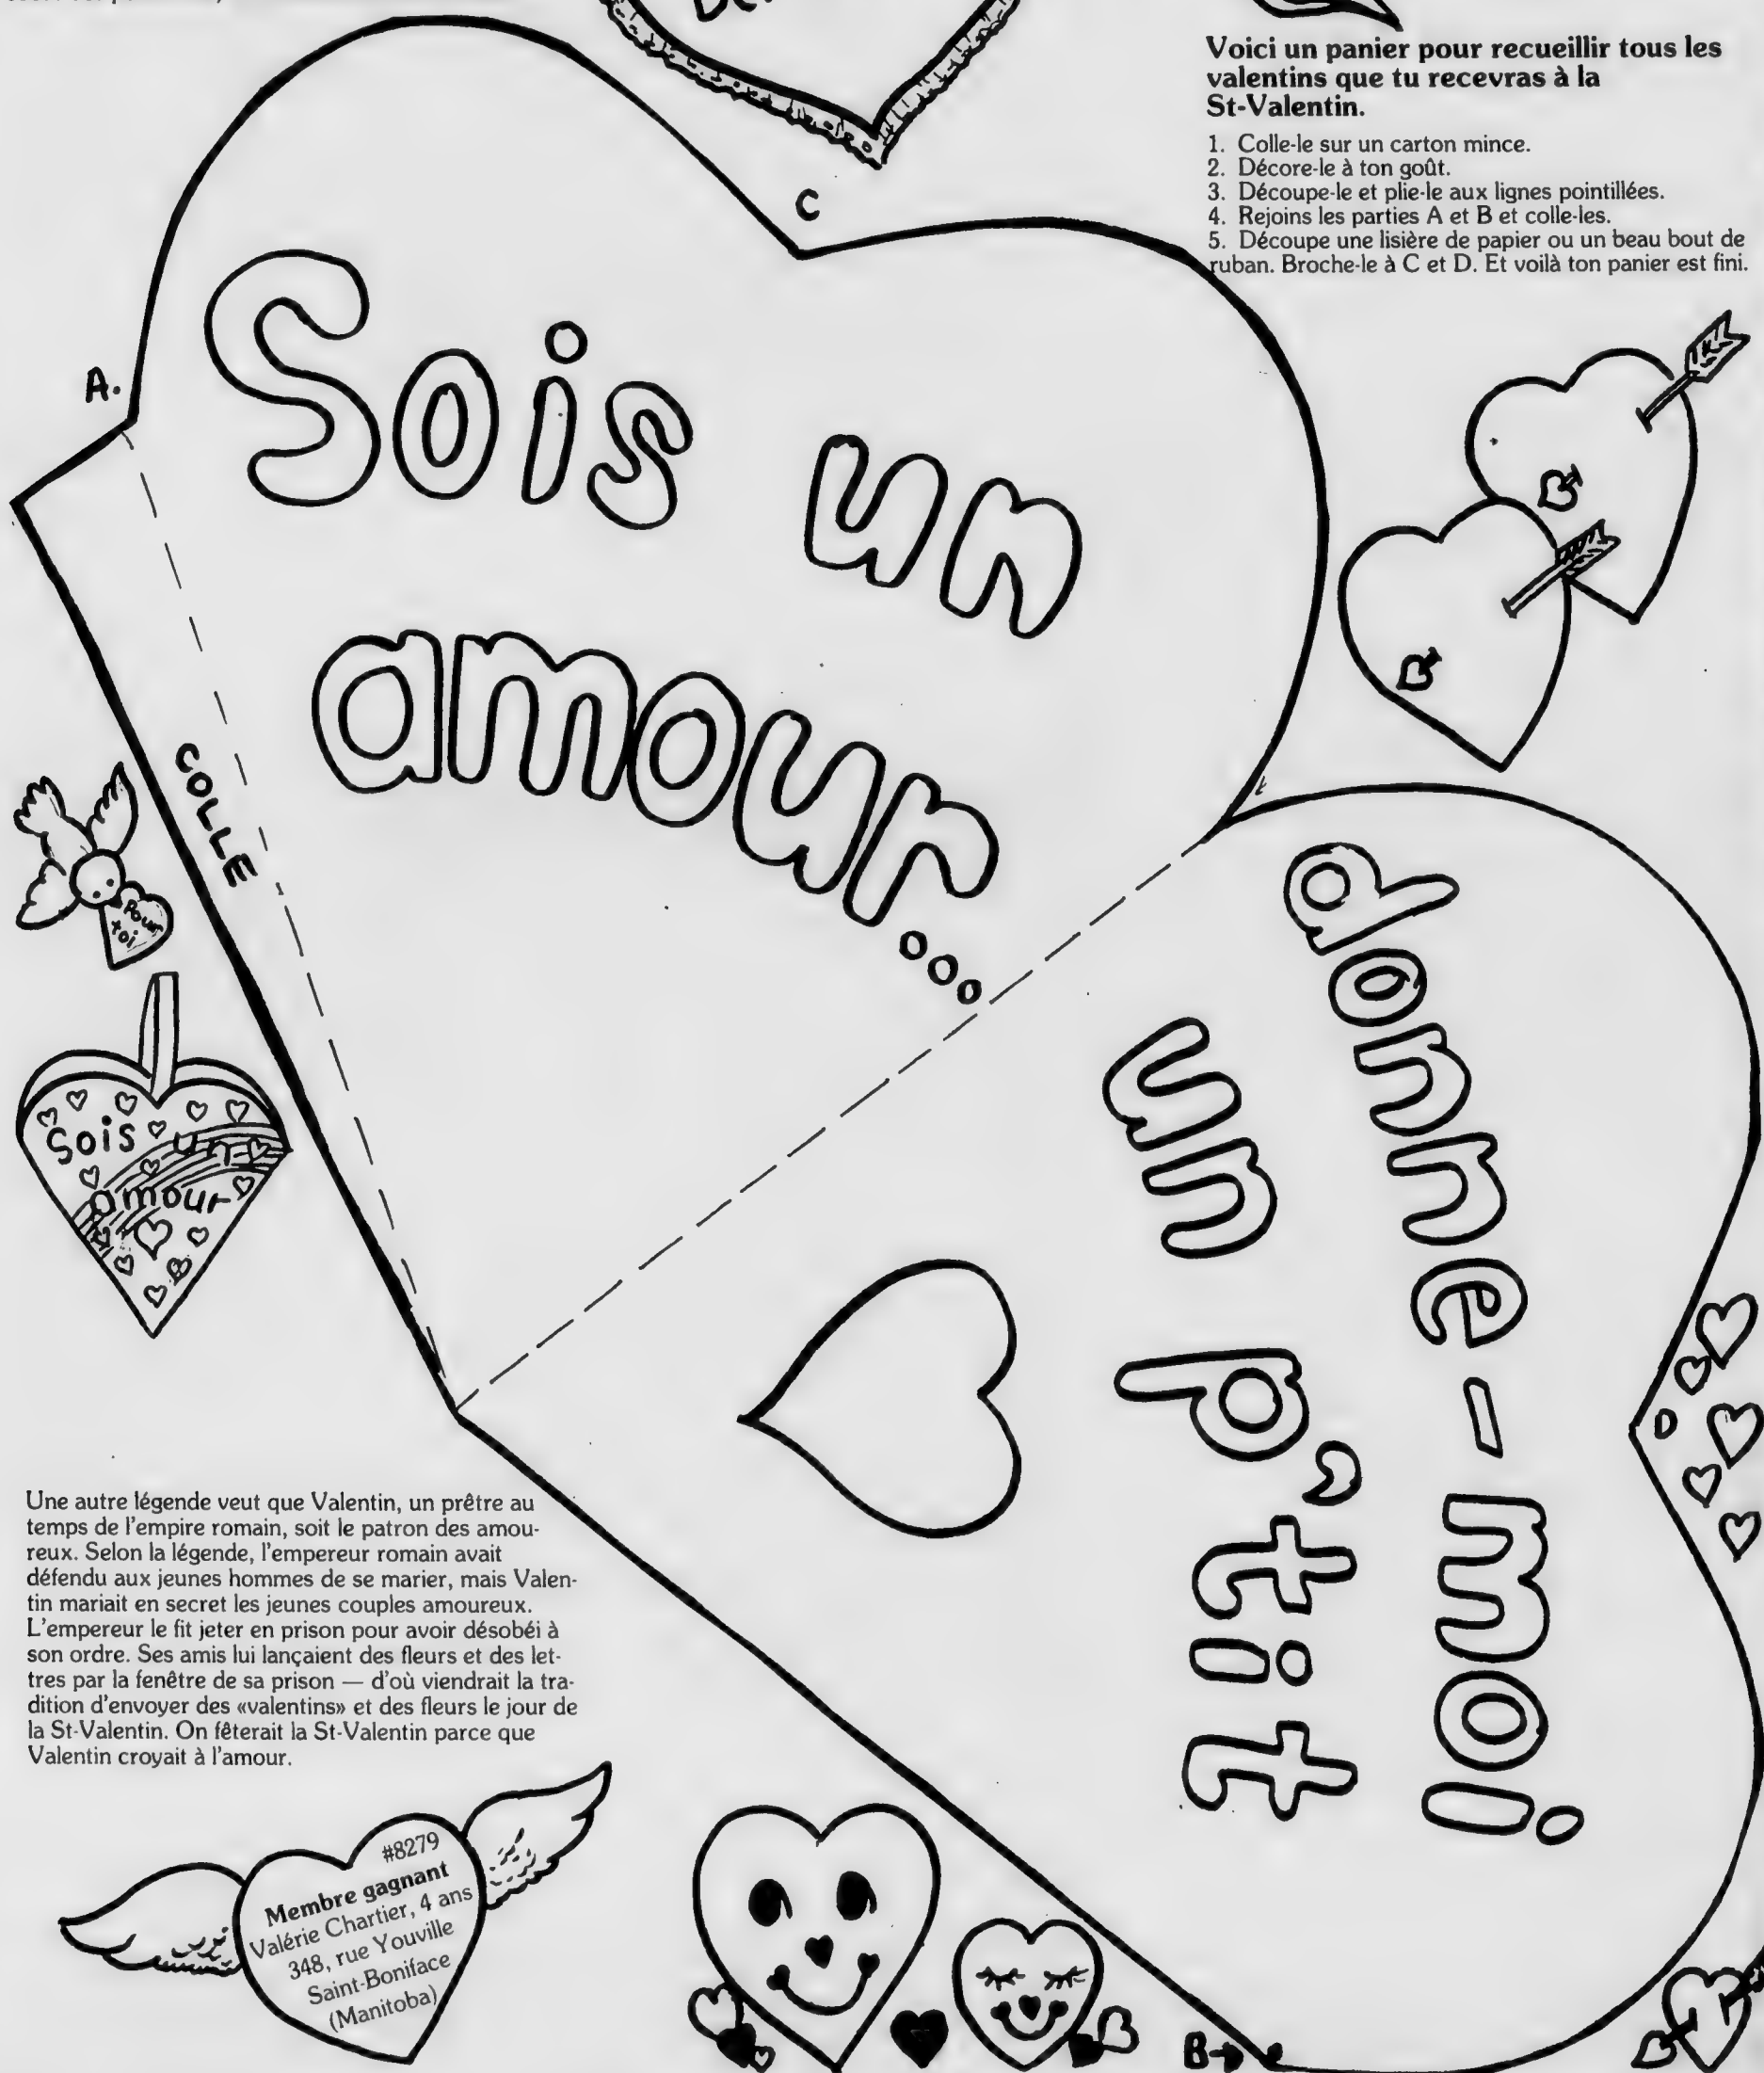 Voici un panier pour recueillir tous les
valentins que tu recevras à la
St-Valentin.
1. Colle-le sur un carton mince.
2. Décore-le à ton goût.
3. Découpe-le et plie-le aux lignes pointillées.
4. Rejoins les parties A et B et colle-les.
5. Découpe une lisière de papier ou un beau bout de
ruban. Broche-le à C et D. Et voilà ton panier est fini.
C
A.
Sois un
amour...
COLLE
Pour
toi
Sois un
amour
donne-moi
un p'tit
D
Une autre légende veut que Valentin, un prêtre au
temps de l'empire romain, soit le patron des amou-
reux. Selon la légende, l'empereur romain avait
défendu aux jeunes hommes de se marier, mais Valen-
tin mariait en secret les jeunes couples amoureux.
L'empereur le fit jeter en prison pour avoir désobéi à
son ordre. Ses amis lui lançaient des fleurs et des let-
tres par la fenêtre de sa prison — d'où viendrait la tra-
dition d'envoyer des «valentins» et des fleurs le jour de
la St-Valentin. On fêterait la St-Valentin parce que
Valentin croyait à l'amour.
#8279
Membre gagnant
Valérie Chartier, 4 ans
348, rue Youville
Saint-Boniface
(Manitoba)
B→